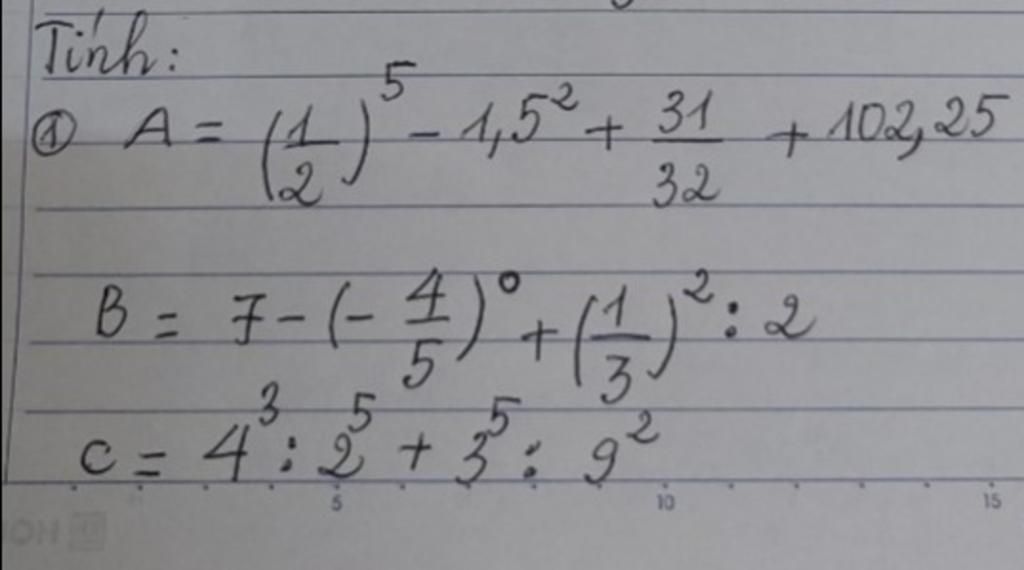 Tính:
① A = (1/2)^5 - 1,5^2 + 31/32 + 102,25
B = 7 - (- 4/5)^0 + (1/3)^2 : 2
C = 4^3 : 2^5 + 3^5 : 9^2
5 10 15